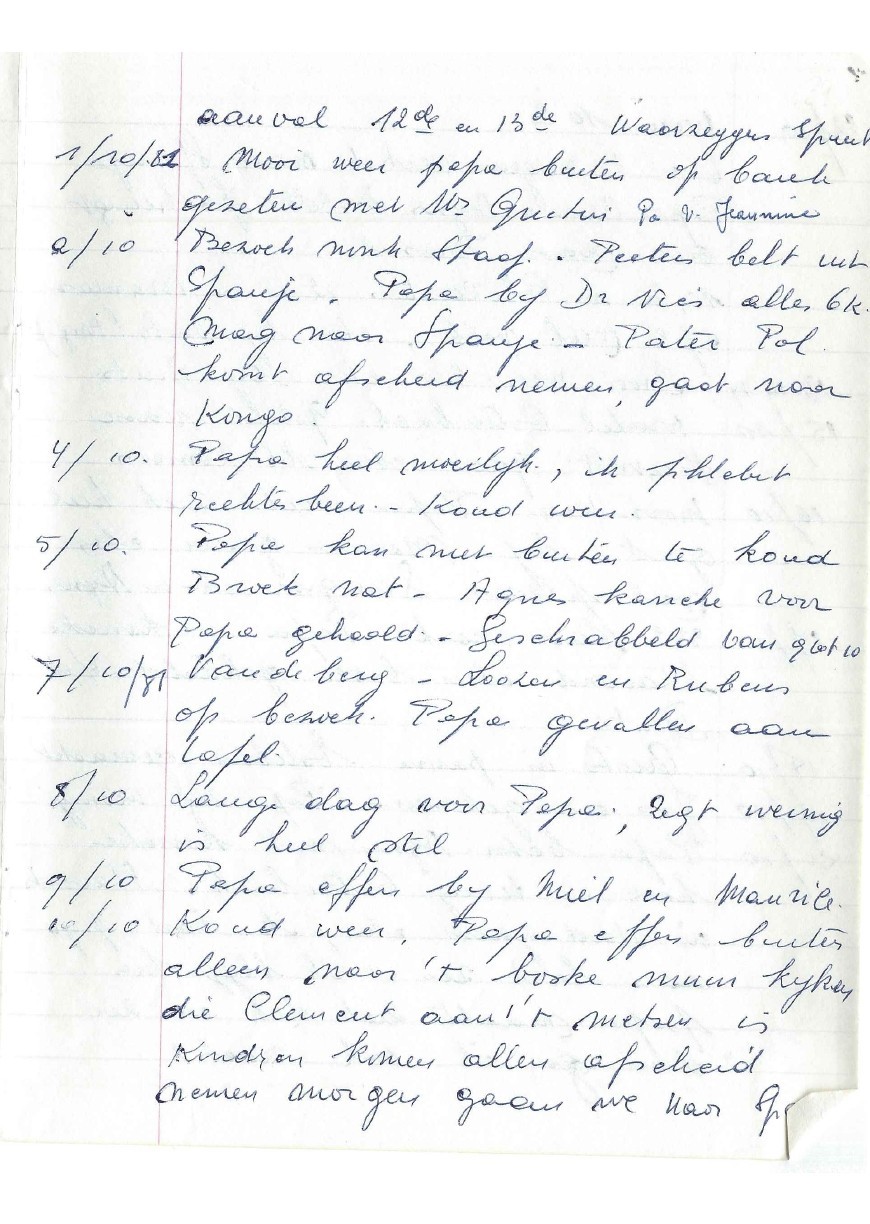 aanval 12de en 13de Waarzeggers
1/10/81 Mooi weer papa buiten op bank
gezeten met Mr Pa v. Jeannine
2/10 Bezoek nonk Staaf. - Peeters belt uit
Spanje. Papa by Dr Nies alles OK.
Mag naar Spanje - Pater Pol.
komt afscheid nemen, gaat naar
Kongo.
4/10. Papa heel moeilyk., ik phlebit
rechtsbeen. - Koud weer
5/10. Papa kan niet buiten te koud
Broek nat - Agnes kanche voor
Papa gehaald. - Geschrabbeld van
7/10/81 Vandeberg - Loozen en Rubens
op bezoek. Papa gevallen aan
tafel.
8/10 Lange dag voor Papa., zegt weinig
is heel stil
9/10 Papa effen by Miel en Maurice.
10/10 Koud weer, Papa effen buiten
alleen naar 't boske muur kyken
die Clement aan 't metsen is
Kindren komen allen afscheid
nemen morgen gaan we naar Sp